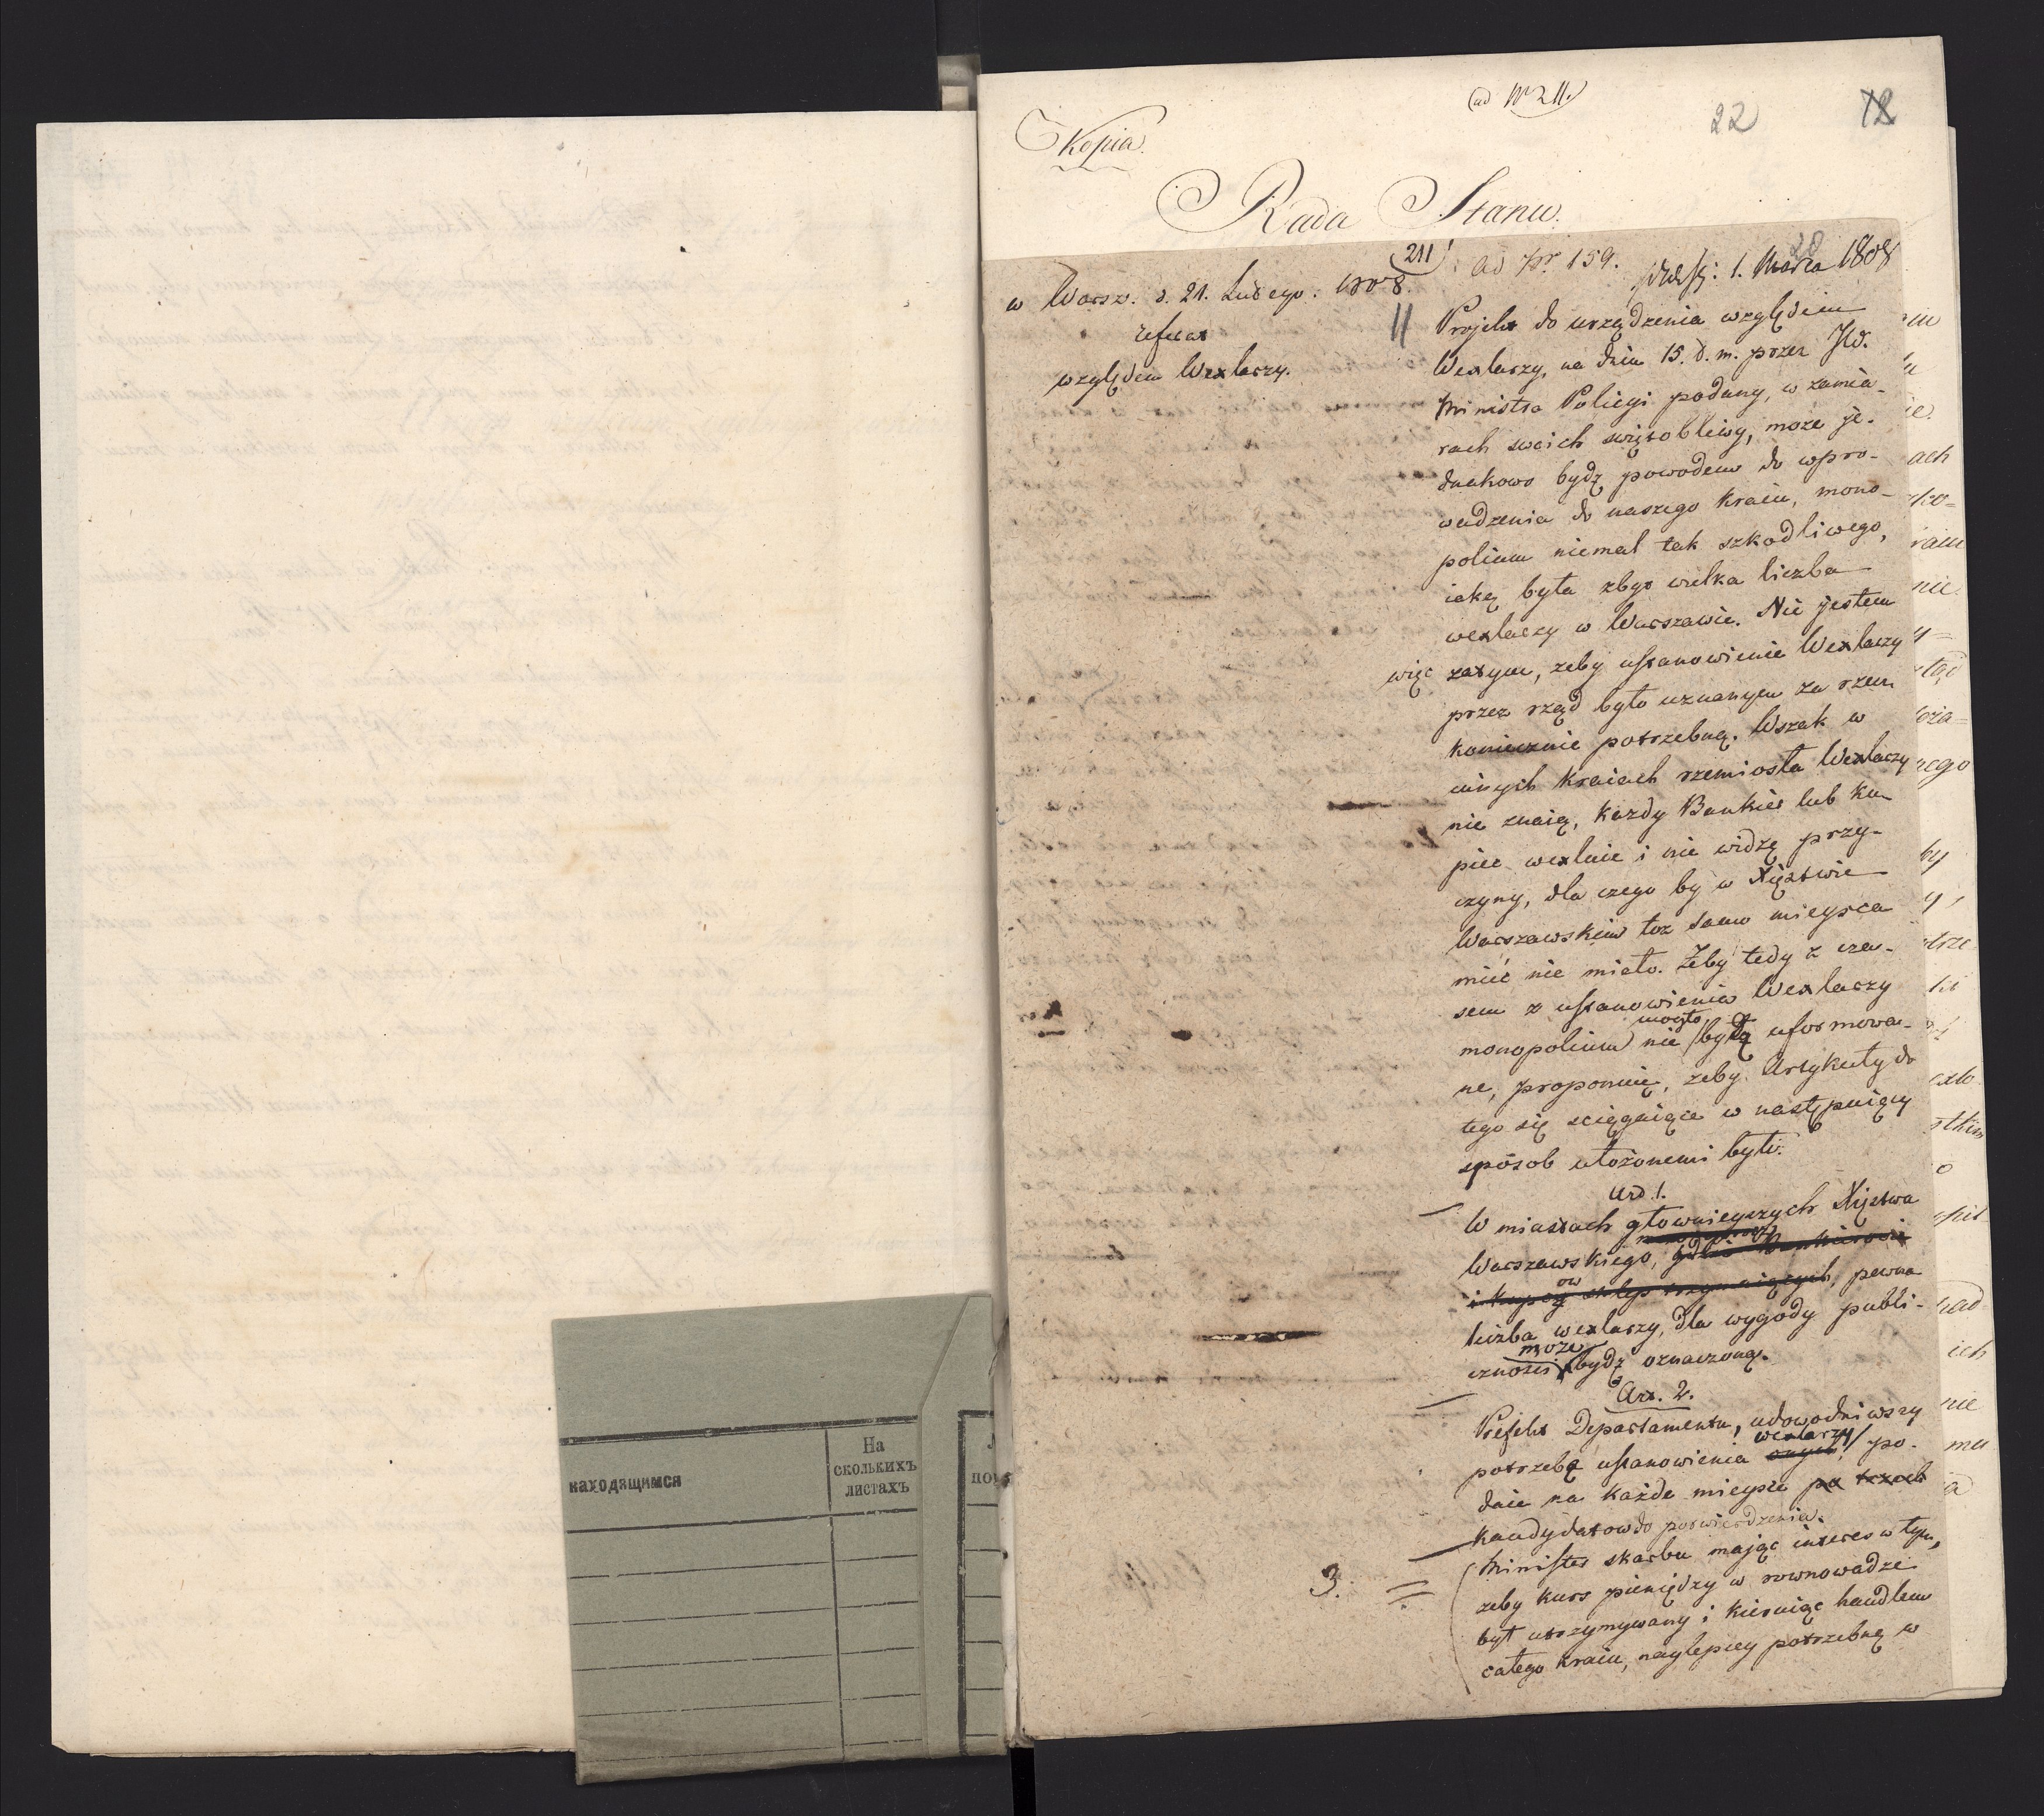 ad Nr 211.
22
12
Kopia.
Rada Stanu.
211
ad Nr. 159.
20
1. Marca 1808
w Warsz. d. 21. Lutego. 1808.
referat
względem Wexlarzy.
Projekt do urządzenia względem
Wexlarzy, na dniu 15. d. m. przez JW.
Ministra Policyi podany, w zamia-
rach swoich świątobliwy, może je-
dnakowo bydź powodem do wpro-
wadzenia do naszego kraiu, mono-
polium niemal tak szkodliwego,
iaką była zbyt wielka liczba
wexlarzy w Warszawie. Nie jestem
więc zatym, żeby ustanowienie Wexlarzy
przez rząd było uznanym za rzecz
koniecznie potrzebną. Wszak w
innych kraiach rzemiosła Wexlarzy
nie znaią, każdy Bankier lub ku-
piec wexluie i nie widzę przy-
czyny, dla czego by w Xięstwie
Warszawskim toż samo mieysca
mieć nie miało. Żeby tedy z cza-
sem z ustanowienia Wexlarzy
mogło
monopolium nie bydź uformowa-
ne, proponuię, żeby Artykuły do
tego się sciągaiące w następuiący
sposób ułożonemi były.
Art. 1.
W miastach główniejszych Xięstwa
Warszawskiego, gdzie Bankierowie
ow
i kupcy sklep trzymaiących, pewna
liczba wexlarzy, dla wygody publi-
może
cznosci bydź oznaczoną.
Art. 2.
Prefekt Departamentu, udowodniwszy
wexlarzy
potrzebę ustanowienia onych, po-
daie na każde mieysce po trzech
kandydatow do potwierdzenia.
3.
Minister skarbu mając interes w tym,
żeby kurs pieniędzy w rownowadze
był utrzymywany i kieruiąc handlem
całego kraiu, naylepiey potrzebną w
находящимся
На
сколькихъ
листахъ